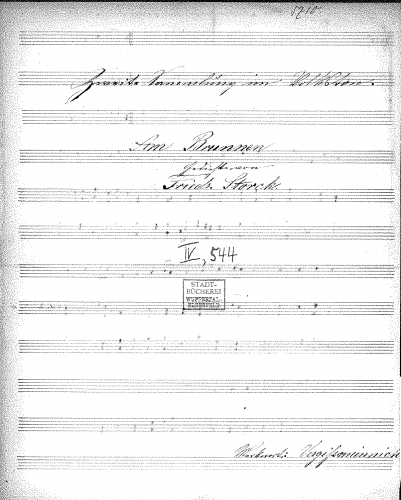 5710
Zweite Sammlung im Volkston.
Am Brunnen
Gedicht von
Friedr. Storck
IV, 544
STADT-
BÜCHEREI
WUPPERTAL
ELBERFELD
Vergißmeinnich